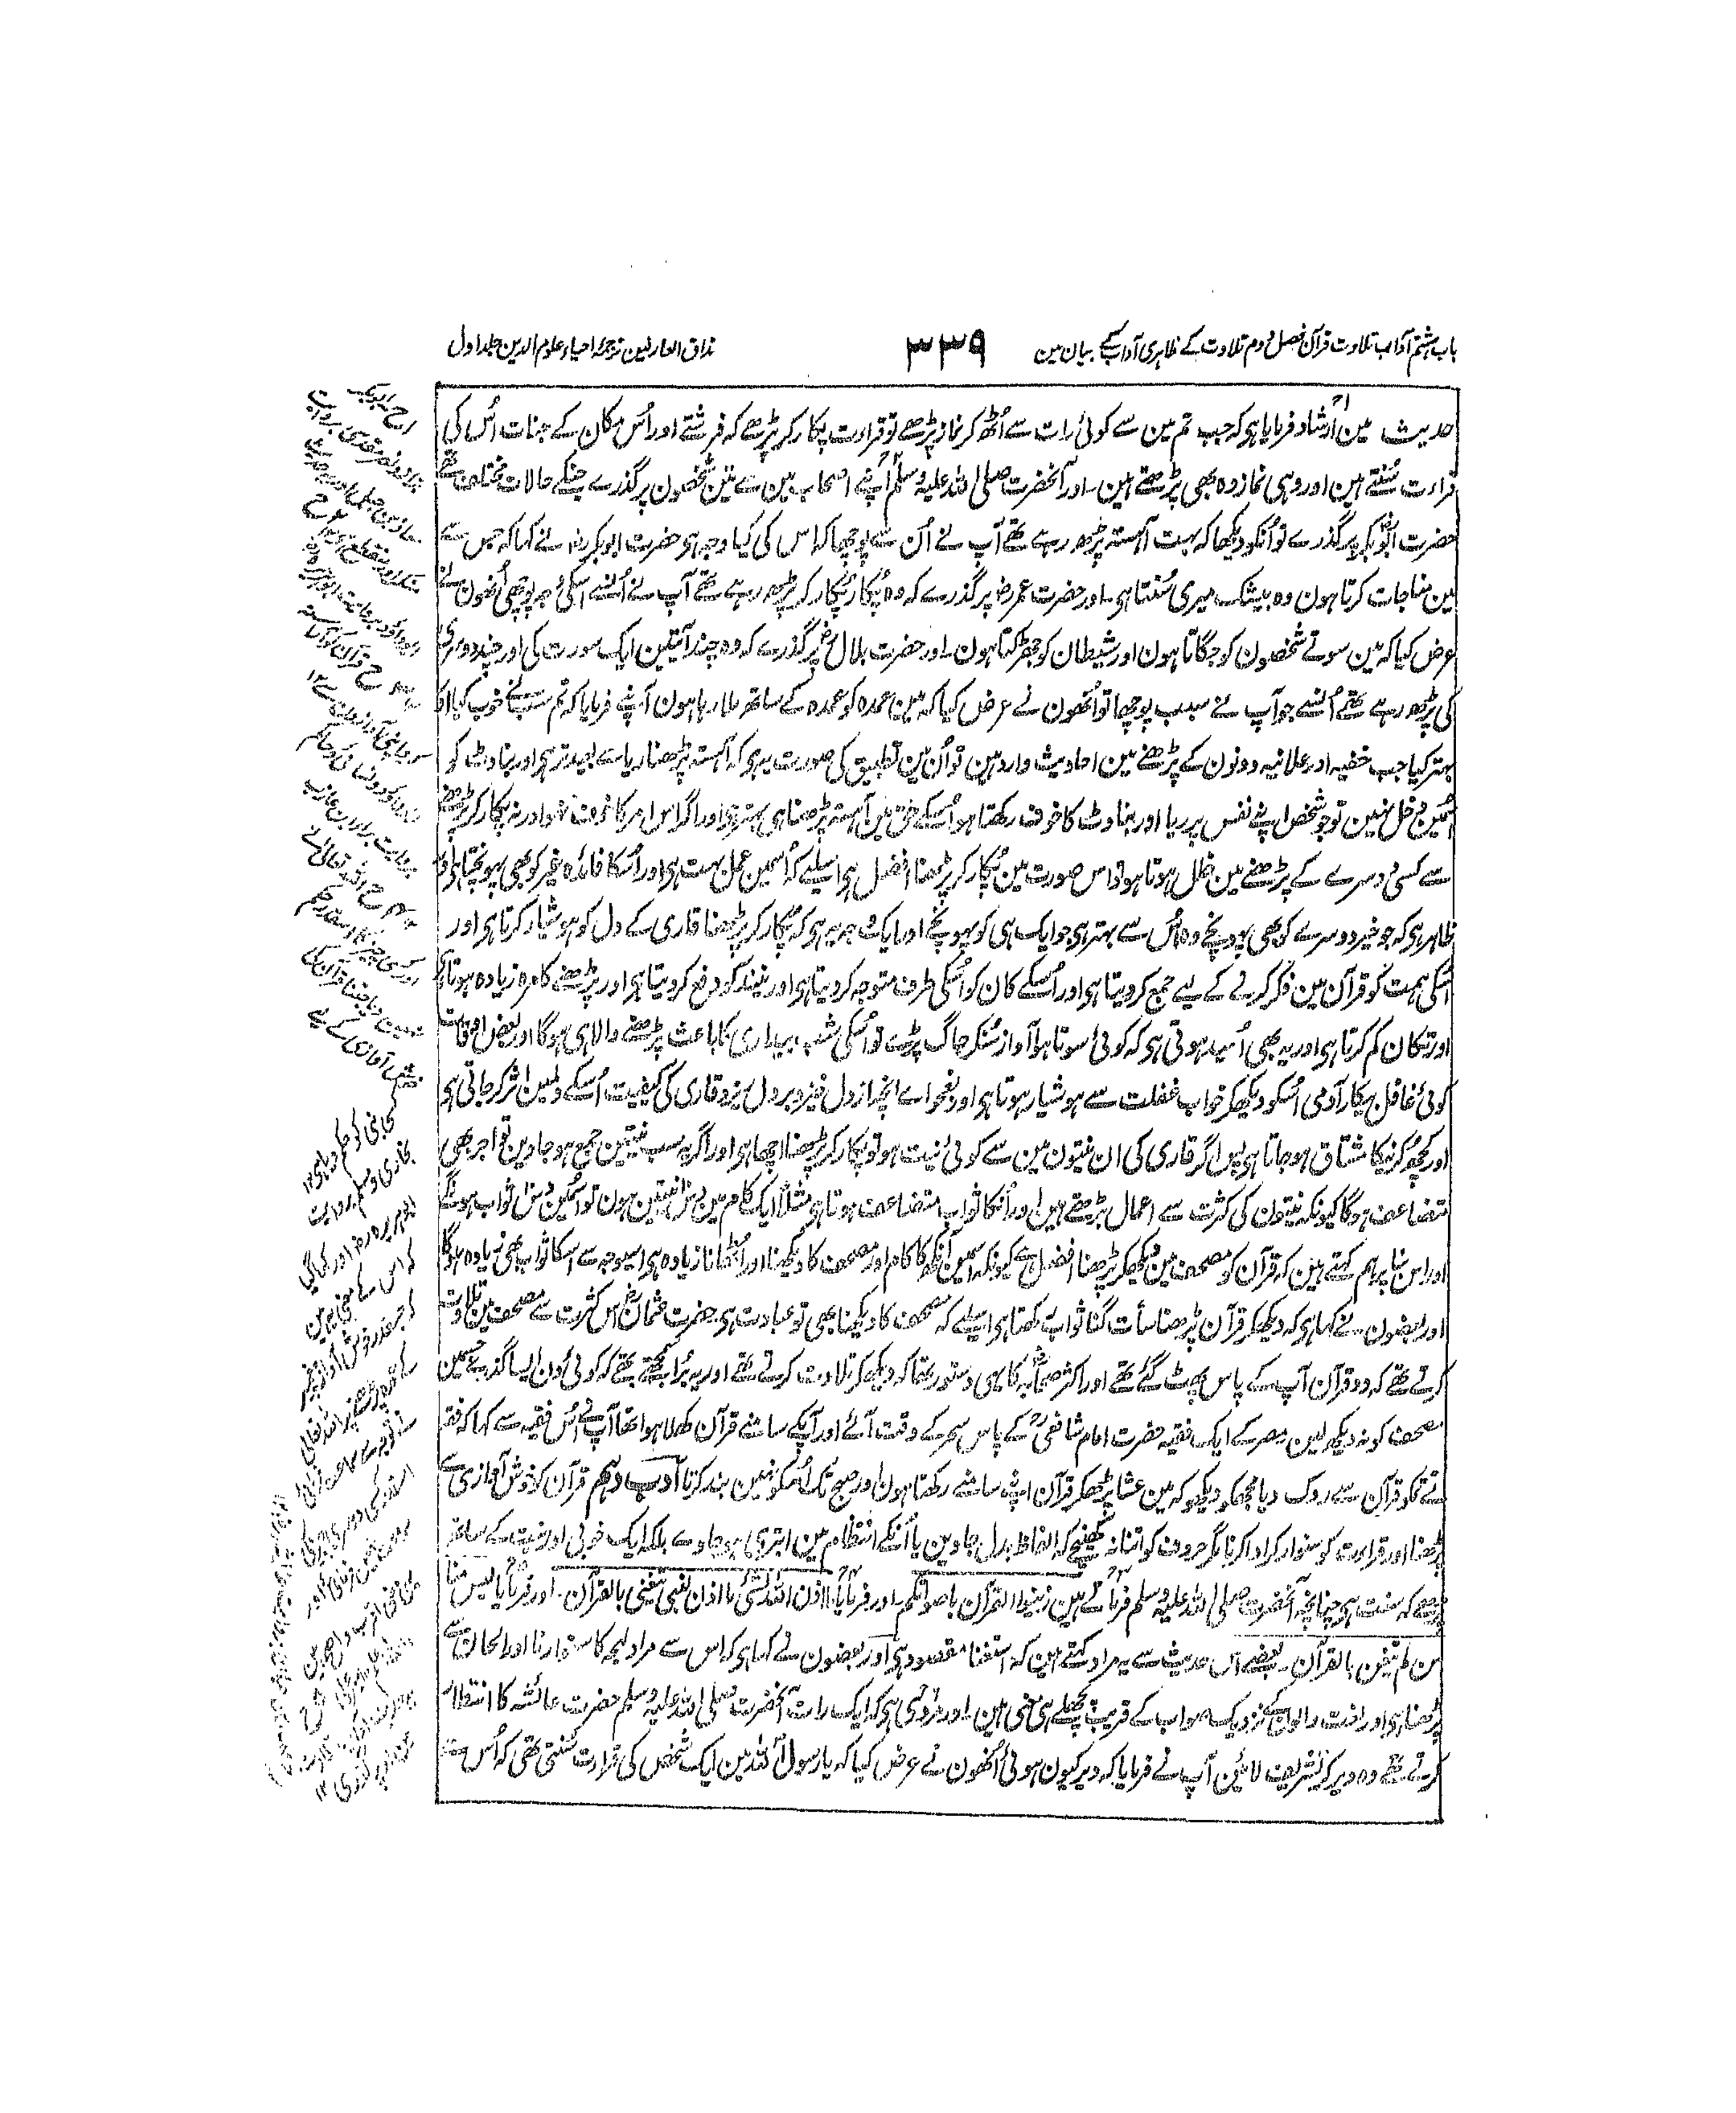 باب ہشتم آداب تلاوت قرآن فصل دوم تلاوت کے ظاہری آداب کے بیان مین
۳۳۹
مذاق العارفین ترجمۂ احیاء علوم الدین جلد اول
حدیث مین ارشاد فرمایا ہی کہ جب تم مین سے کوئی رات سے اُٹھ کر نماز پڑھے تو قراءت پکار کر پڑھے کہ فرشتے اور اُس مکان کے جنات اُس کی
قراءت سُنتے ہین اور وہی نماز وہ بھی پڑھتے ہین۔ اور آنحضرت صلی اللہ علیہ وسلم اپنے اصحاب مین سے تین شخصون پر گذرے جنکے حالات مختلف تھے
حضرت ابوبکرؓ پر گذرے تو اُنکو دیکھا کہ بہت آہستہ پڑھ رہے تھے آپ نے اُن سے پوچھا کہ اس کی کیا وجہ ہی حضرت ابوبکر رضہ نے کہا کہ جس سے
مین مناجات کرتا ہون وہ بیشک میری سُنتا ہی۔ اور حضرت عمر رضہ پر گذرے کہ وہ پُکار پُکار کر پڑھ رہے تھے آپ نے اُنسے اسکی وجہ پوچھی اُنھون نے
عرض کیا کہ مین سوتے شخصون کو جگاتا ہون اور شیطان کو جھڑکتا ہون۔ اور حضرت بلال رضہ پر گذرے کہ وہ چند آیتین ایک سورت کی اور چند دوسری
کی پڑھ رہے تھے اُنسے جو آپ نے سبب پوچھا تو اُنھون نے عرض کیا کہ مین عمدہ کو عمدہ کے ساتھ ملا رہا ہون آپنے فرمایا کہ تم سب نے خوب کیا اور
بہتر کیا جب خفیہ اور علانیہ دونون کے پڑھنے مین احادیث وارد ہین تو اُن مین تطبیق کی صورت یہ ہی کہ آہستہ پڑھنا ریا سے بعید تر ہی اور بناوٹ کو
اُسمین دخل نہین تو جو شخص اپنے نفس پر ریا اور بناوٹ کا خوف رکھتا ہو اُسکے حق مین آہستہ پڑھنا ہی بہتر ہی اور اگر اس امر کا خوف نہو اور نہ پکار کر پڑھنے
سے کسی دوسرے کے پڑھنے مین خلل ہوتا ہو تو اس صورت مین پُکار کر پڑھنا افضل ہی اسلیے کہ اُسمین عمل بہت ہی اور اُسکا فائدہ غیر کو بھی پہونچتا ہی اور
ظاہر ہی کہ جو خیر دوسرے کو بھی پہونچے وہ اُس سے بہتر ہی جو ایک ہی کو پہونچے اور ایک وجہ یہ ہی کہ پُکار کر پڑھنا قاری کے دل کو ہوشیار کرتا ہی اور
اُسکی ہمت کو قرآن مین فکر کرنے کے لیے جمع کر دیتا ہی اور اُسکے کان کو اُسکی طرف متوجہ کر دیتا ہی اور نیند کو دفع کر دیتا ہی اور پڑھنے کا مزہ زیادہ ہوتا ہی
اور تکان کم کرتا ہی اور یہ بھی اُمید ہوتی ہی کہ کوئی سوتا ہوا آواز سُنکر جاگ پڑے تو اُسکی شب بیداری کا باعث پڑھنے والا ہی ہوگا اور بعض اوقات
کوئی غافل بیکار آدمی اُسکو دیکھکر خواب غفلت سے ہوشیار ہوتا ہی اور بفحواے انچہ از دل خیزد بر دل ریزد قاری کی کیفیت اُسکے دلمین اثر کر جاتی ہی
اور کچھ کرنیکا مشتاق ہو جاتا ہی پس اگر قاری کی ان نیتون مین سے کوئی نیت ہو تو پکار کر پڑھنا اچھا ہی اور اگر یہ سب نیتین جمع ہو جاوین تو اجر بھی
متضاعف ہوگا کیونکہ نیتون کی کثرت سے اعمال بڑھتے ہین اور اُنکا ثواب متضاعف ہوتا ہی مثلاً ایک کام مین دس نیتین ہون تو اسمین دس ثواب ہونگے
اور اس بنا پر ہم کہتے ہین کہ قرآن کو مصحف مین دیکھکر پڑھنا افضل ہے کیونکہ اسمین آنکھ کا کام اور مصحف کا دیکھنا اور اُٹھانا زیادہ ہی اسیوجہ سے اسکا ثواب بھی زیادہ ہوگا
اور بعضون نے کہا ہی کہ دیکھکر قرآن پڑھنا سات گنا ثواب رکھتا ہی اسلیے کہ مصحف کا دیکھنا بھی تو عبادت ہی حضرت عثمان رضہ اس کثرت سے مصحف مین تلاوت
کرتے تھے کہ دو قرآن آپ کے پاس پھٹ گئے تھے اور اکثر صحابہؓ کا یہی دستور تھا کہ دیکھ کر تلاوت کرتے تھے اور یہ بُرا سمجھتے تھے کہ کوئی دن ایسا گذرے جسمین
مصحف کو نہ دیکھ لین مصر کے ایک فقیہ حضرت امام شافعیؒ کے پاس سحر کے وقت آئے اور آپکے سامنے قرآن کھلا ہوا تھا آپنے اُس فقیہ سے کہا کہ فقہ
نے تمکو قرآن سے روک دیا مجھکو دیکھو کہ مین عشا پڑھکر قرآن اپنے سامنے رکھتا ہون اور صبح تک اُسکو نہین بند کرتا ادب دہم قرآن کو خوش آوازی سے
پڑھنا اور قراءت کو سنوار کر ادا کرنا مگر حروف کو اتنا نہ کھینچے کہ الفاظ بدل جاوین یا اُنکے انتظام مین ابتری ہو جاوے بلکہ ایک خوبی اور زینت کے ساتھ
پڑھے کہ سنت ہی چنانچہ آنحضرت صلی اللہ علیہ وسلم فرماتے ہین زینوا القرآن باصواتکم۔ اور فرمایا ما اذن اللہ لشیٔ ما اذن لنبی یتغنی بالقرآن۔ اور فرمایا لیس منا
من لم یتغن بالقرآن۔ بعضے اس حدیث سے یہ مراد کہتے ہین کہ استغنا مقصود ہی اور بعضون نے کہا ہی کہ اس سے مراد لہجہ کا سنوارنا اور الحان سے
پڑھنا ہی اور لغت والون کے نزدیک صواب کے قریب پچھلے ہی معنی ہین۔ اور مروی ہی کہ ایک رات آنحضرت صلی اللہ علیہ وسلم حضرت عائشہ کا انتظار
کرتے تھے وہ دیر کر تشریف لائین آپ نے فرمایا کہ دیر کیون ہوئی اُنھون نے عرض کیا کہ یا رسول اللہ مین ایک شخص کی قراءت سُنتی تھی کہ اُس سے
بخاری و مسلم بروایت